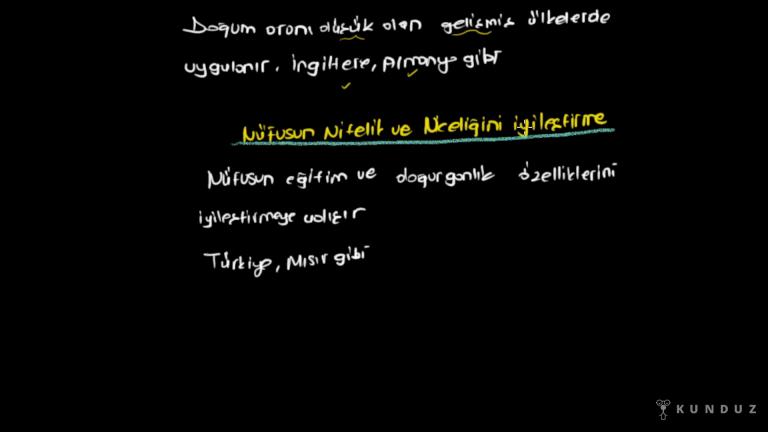 Doğum oranı düşük olan gelişmiş ülkelerde
uygulanır. İngiltere, Almanya gibi
Nüfusun Nitelik ve Niceliğini iyileştirme
Nüfusun eğitim ve doğurganlık özelliklerini
iyileştirmeye çalışır
Türkiye, Mısır gibi
KUNDUZ